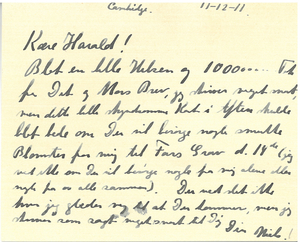 Cambridge. 11-12-11
Kære Harald!
Blot en lille Hilsen og 1000...... Tak
for Dit og Mors Brev, jeg skriver meget snart
men dette lille Kort i Aften skulde
blot bede om Du vil bringe nogle smukke
Blomster fra mig til Fars Grav d. 14de (jeg
ved ikke om Du vil bringe nogle fra mig alene eller
nogle fra os alle sammen). Du ved det ikke
hvor jeg glæder mig til at Du kommer, men jeg
skriver som sagt meget snart til Dig
Din Niels!